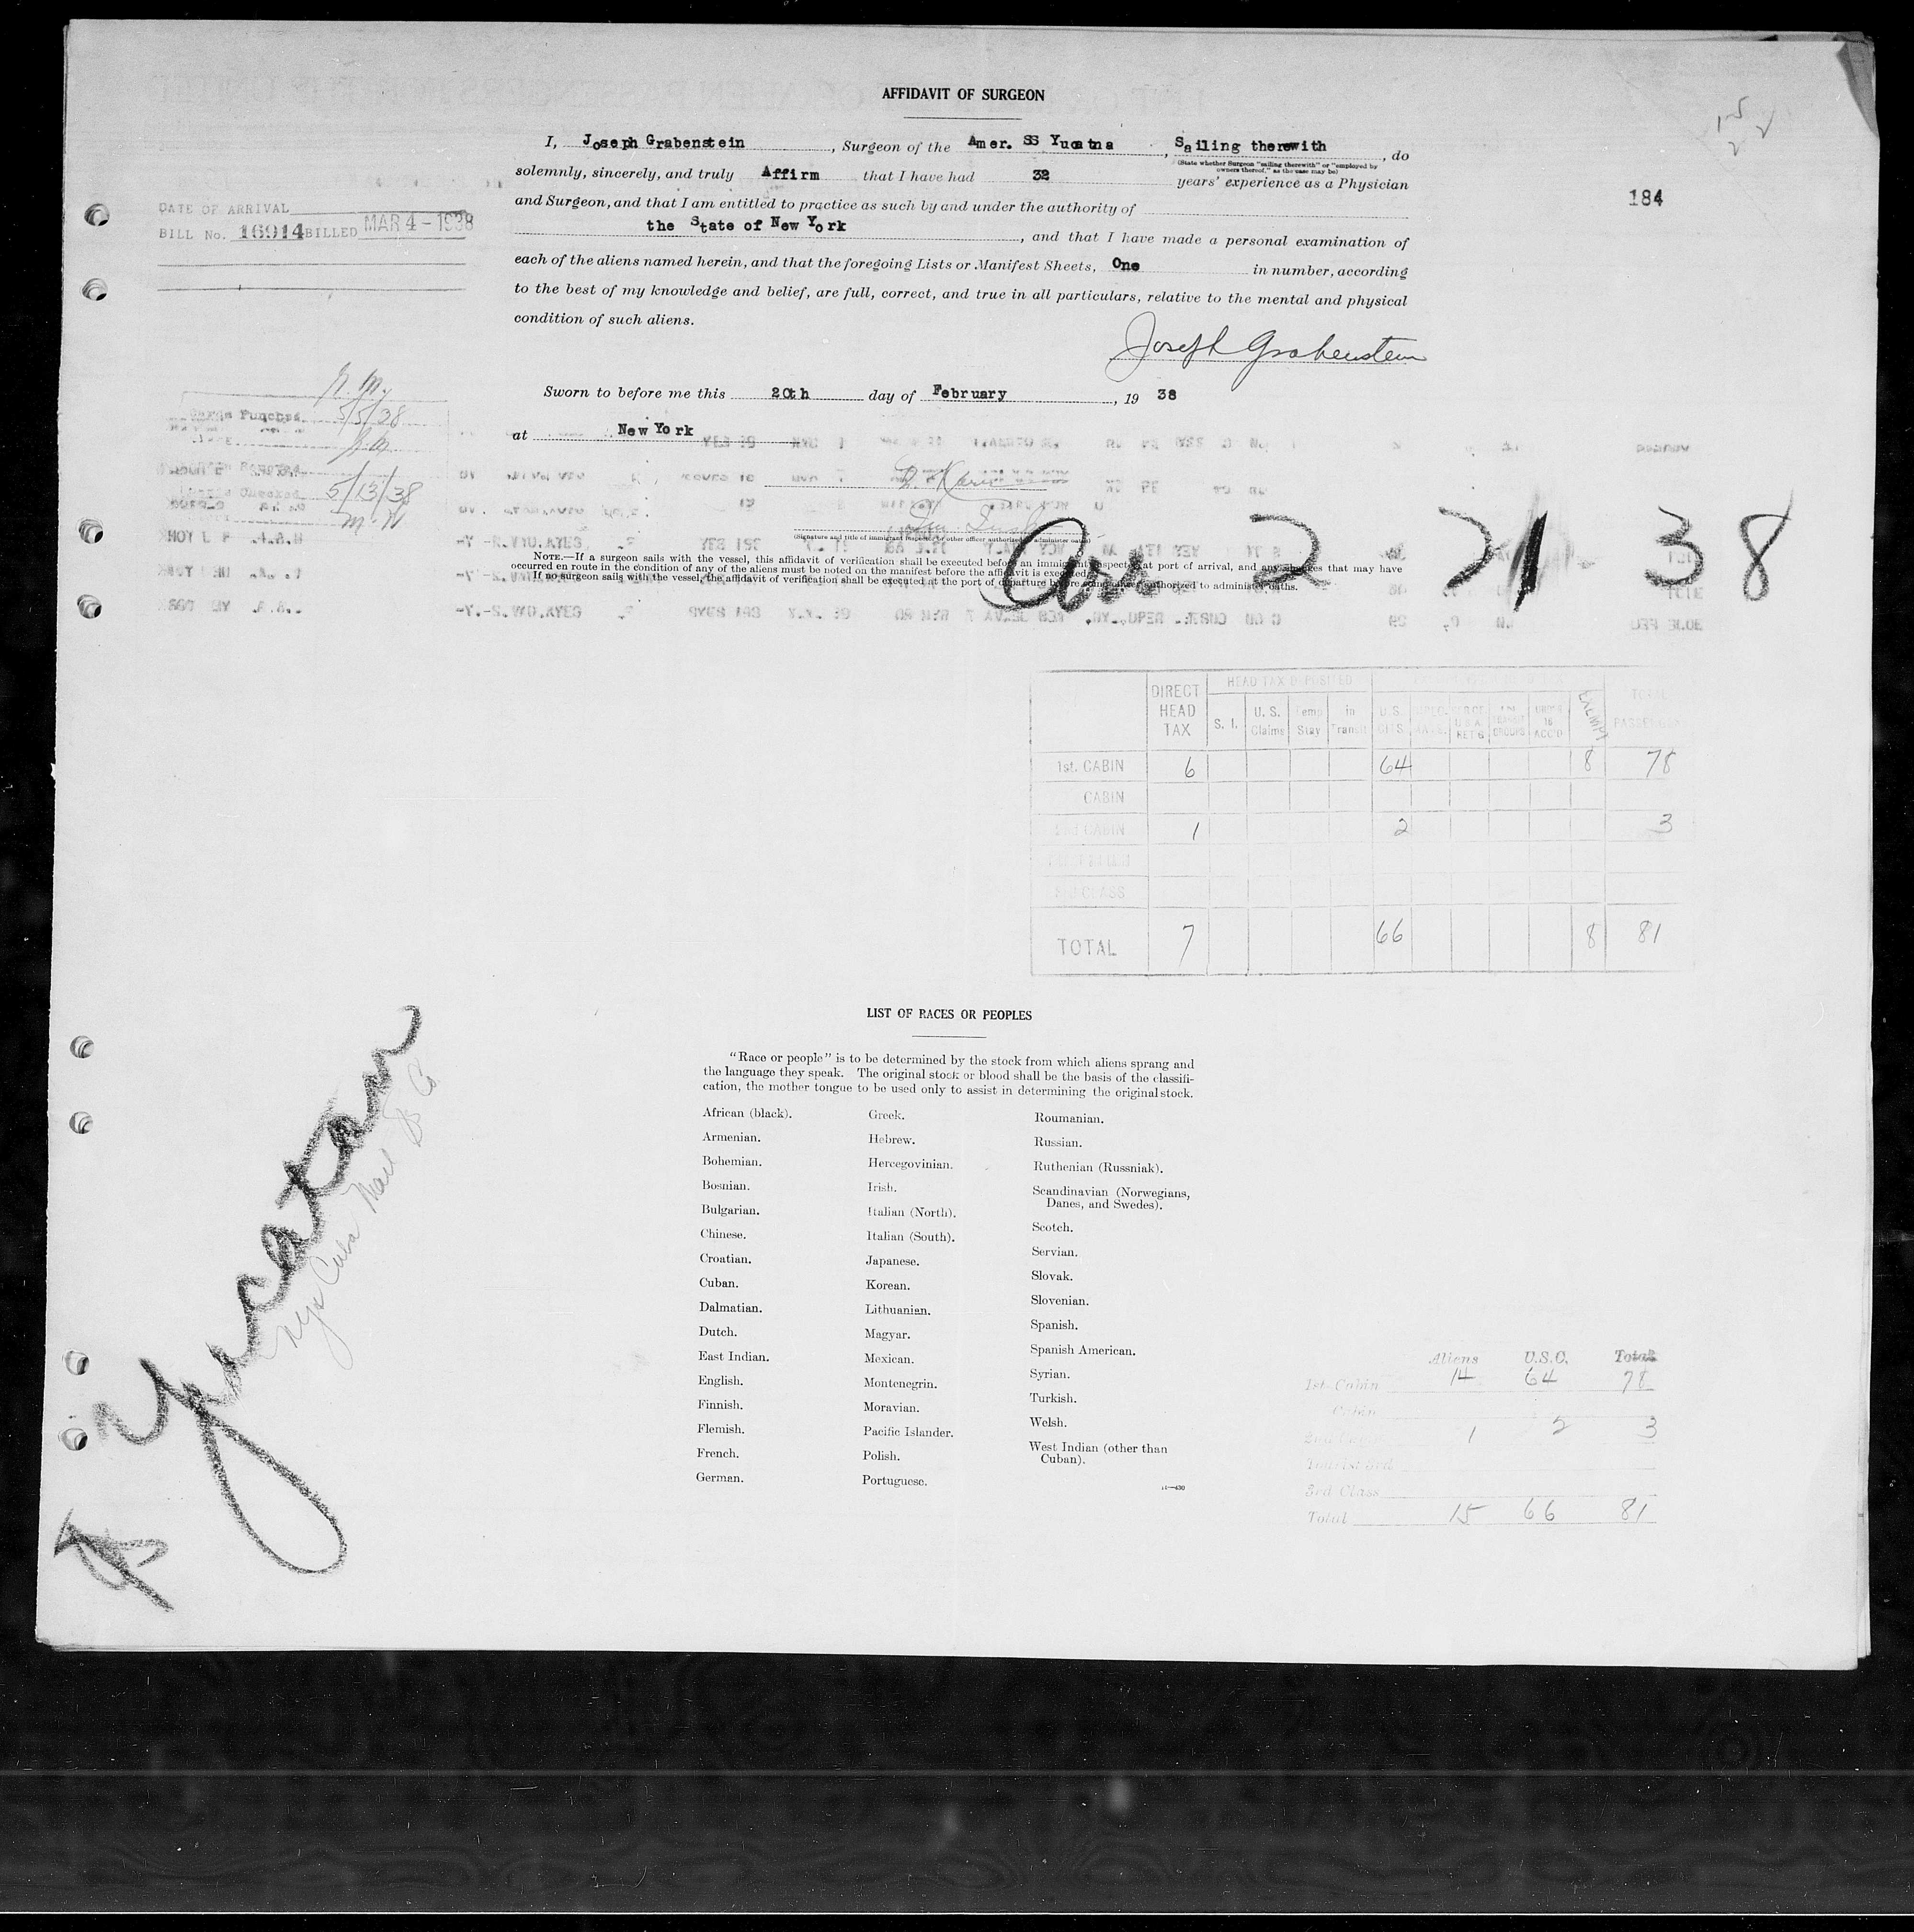 AFFIDAVIT OF SURGEON
I, Joseph Grabenstein, Surgeon of the Amer. SS Yucatna, Sailing therewith, do
(State whether Surgeon "sailing therewith" or "employed by
owners thereof," as the case may be)
solemnly, sincerely, and truly Affirm that I have had 32 years' experience as a Physician
and Surgeon, and that I am entitled to practice as such by and under the authority of
the State of New York, and that I have made a personal examination of
each of the aliens named herein, and that the foregoing Lists or Manifest Sheets, One in number, according
to the best of my knowledge and belief, are full, correct, and true in all particulars, relative to the mental and physical
condition of such aliens.
Joseph Grabenstein
184
DATE OF ARRIVAL
BILL No. 16914 BILLED MAR 4 - 1938
Sworn to before me this 20th day of February, 19 38
at New York
5/5/38
5/13/38
(Signature and title of immigrant inspector or other officer authorized to administer oaths)
NOTE.—If a surgeon sails with the vessel, this affidavit of verification shall be executed before an immigrant inspector at port of arrival, and any changes that may have
occurred en route in the condition of any of the aliens must be noted on the manifest before the affidavit is executed.
If no surgeon sails with the vessel, the affidavit of verification shall be executed at the port of departure before some officer authorized to administer oaths.
Arr 2 21 38
DIRECT HEAD TAX
HEAD TAX DEPOSITED
S. I.
U. S. Claims
Temp Stay
in Transit
U.S. CITS.
EXEMPT
TOTAL PASSENGERS
1st. CABIN 6 64 8 78
CABIN
2nd CABIN 1 2 3
3rd CLASS
TOTAL 7 66 8 81
LIST OF RACES OR PEOPLES
"Race or people" is to be determined by the stock from which aliens sprang and
the language they speak. The original stock or blood shall be the basis of the classifi-
cation, the mother tongue to be used only to assist in determining the original stock.
African (black).
Armenian.
Bohemian.
Bosnian.
Bulgarian.
Chinese.
Croatian.
Cuban.
Dalmatian.
Dutch.
East Indian.
English.
Finnish.
Flemish.
French.
German.
Greek.
Hebrew.
Hercegovinian.
Irish.
Italian (North).
Italian (South).
Japanese.
Korean.
Lithuanian.
Magyar.
Mexican.
Montenegrin.
Moravian.
Pacific Islander.
Polish.
Portuguese.
Roumanian.
Russian.
Ruthenian (Russniak).
Scandinavian (Norwegians,
Danes, and Swedes).
Scotch.
Servian.
Slovak.
Slovenian.
Spanish.
Spanish American.
Syrian.
Turkish.
Welsh.
West Indian (other than
Cuban).
Aliens U.S.C. Total
1st Cabin 14 64 78
Cabin
2nd Cabin 1 2 3
3rd Class
Total 15 66 81
Yucatan
NY & Cuba Mail SS Co